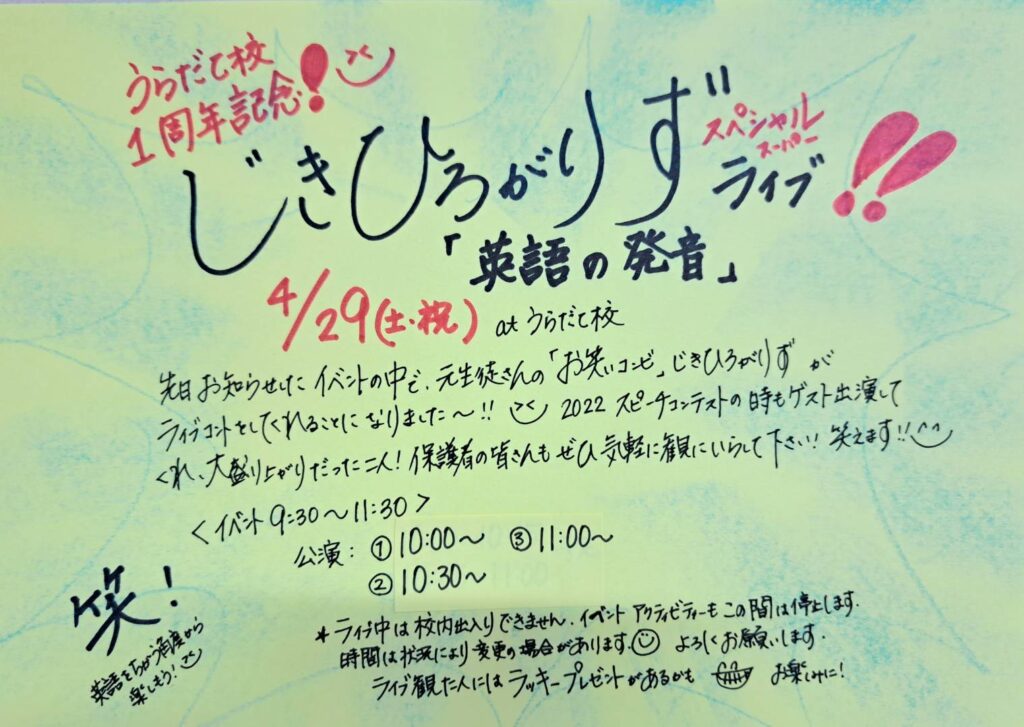 うらだて校
1周年記念!
じきひろがりず
スペシャル
スーパー
ライブ!!
「英語の発音」
4/29(土・祝) at うらだて校
先日お知らせしたイベントの中で、元生徒さんの「お笑いコンビ」じきひろがりずが
ライブコントをしてくれることになりました〜!! 2022 スピーチコンテストの時もゲスト出演して
くれ、大盛り上がりだった二人! 保護者の皆さんもぜひ気軽に観にいらして下さい! 笑えます!! ^^
<イベント 9:30〜11:30>
公演: ①10:00〜 ③11:00〜
②10:30〜
笑!
英語をちがう角度から
楽しもう!
*ライブ中は校内出入りできません。イベント アクティビティーもこの間は停止します.
時間は状況により変更の場合があります。 よろしくお願いします.
ライブ観た人にはラッキープレゼントがあるかも お楽しみに!